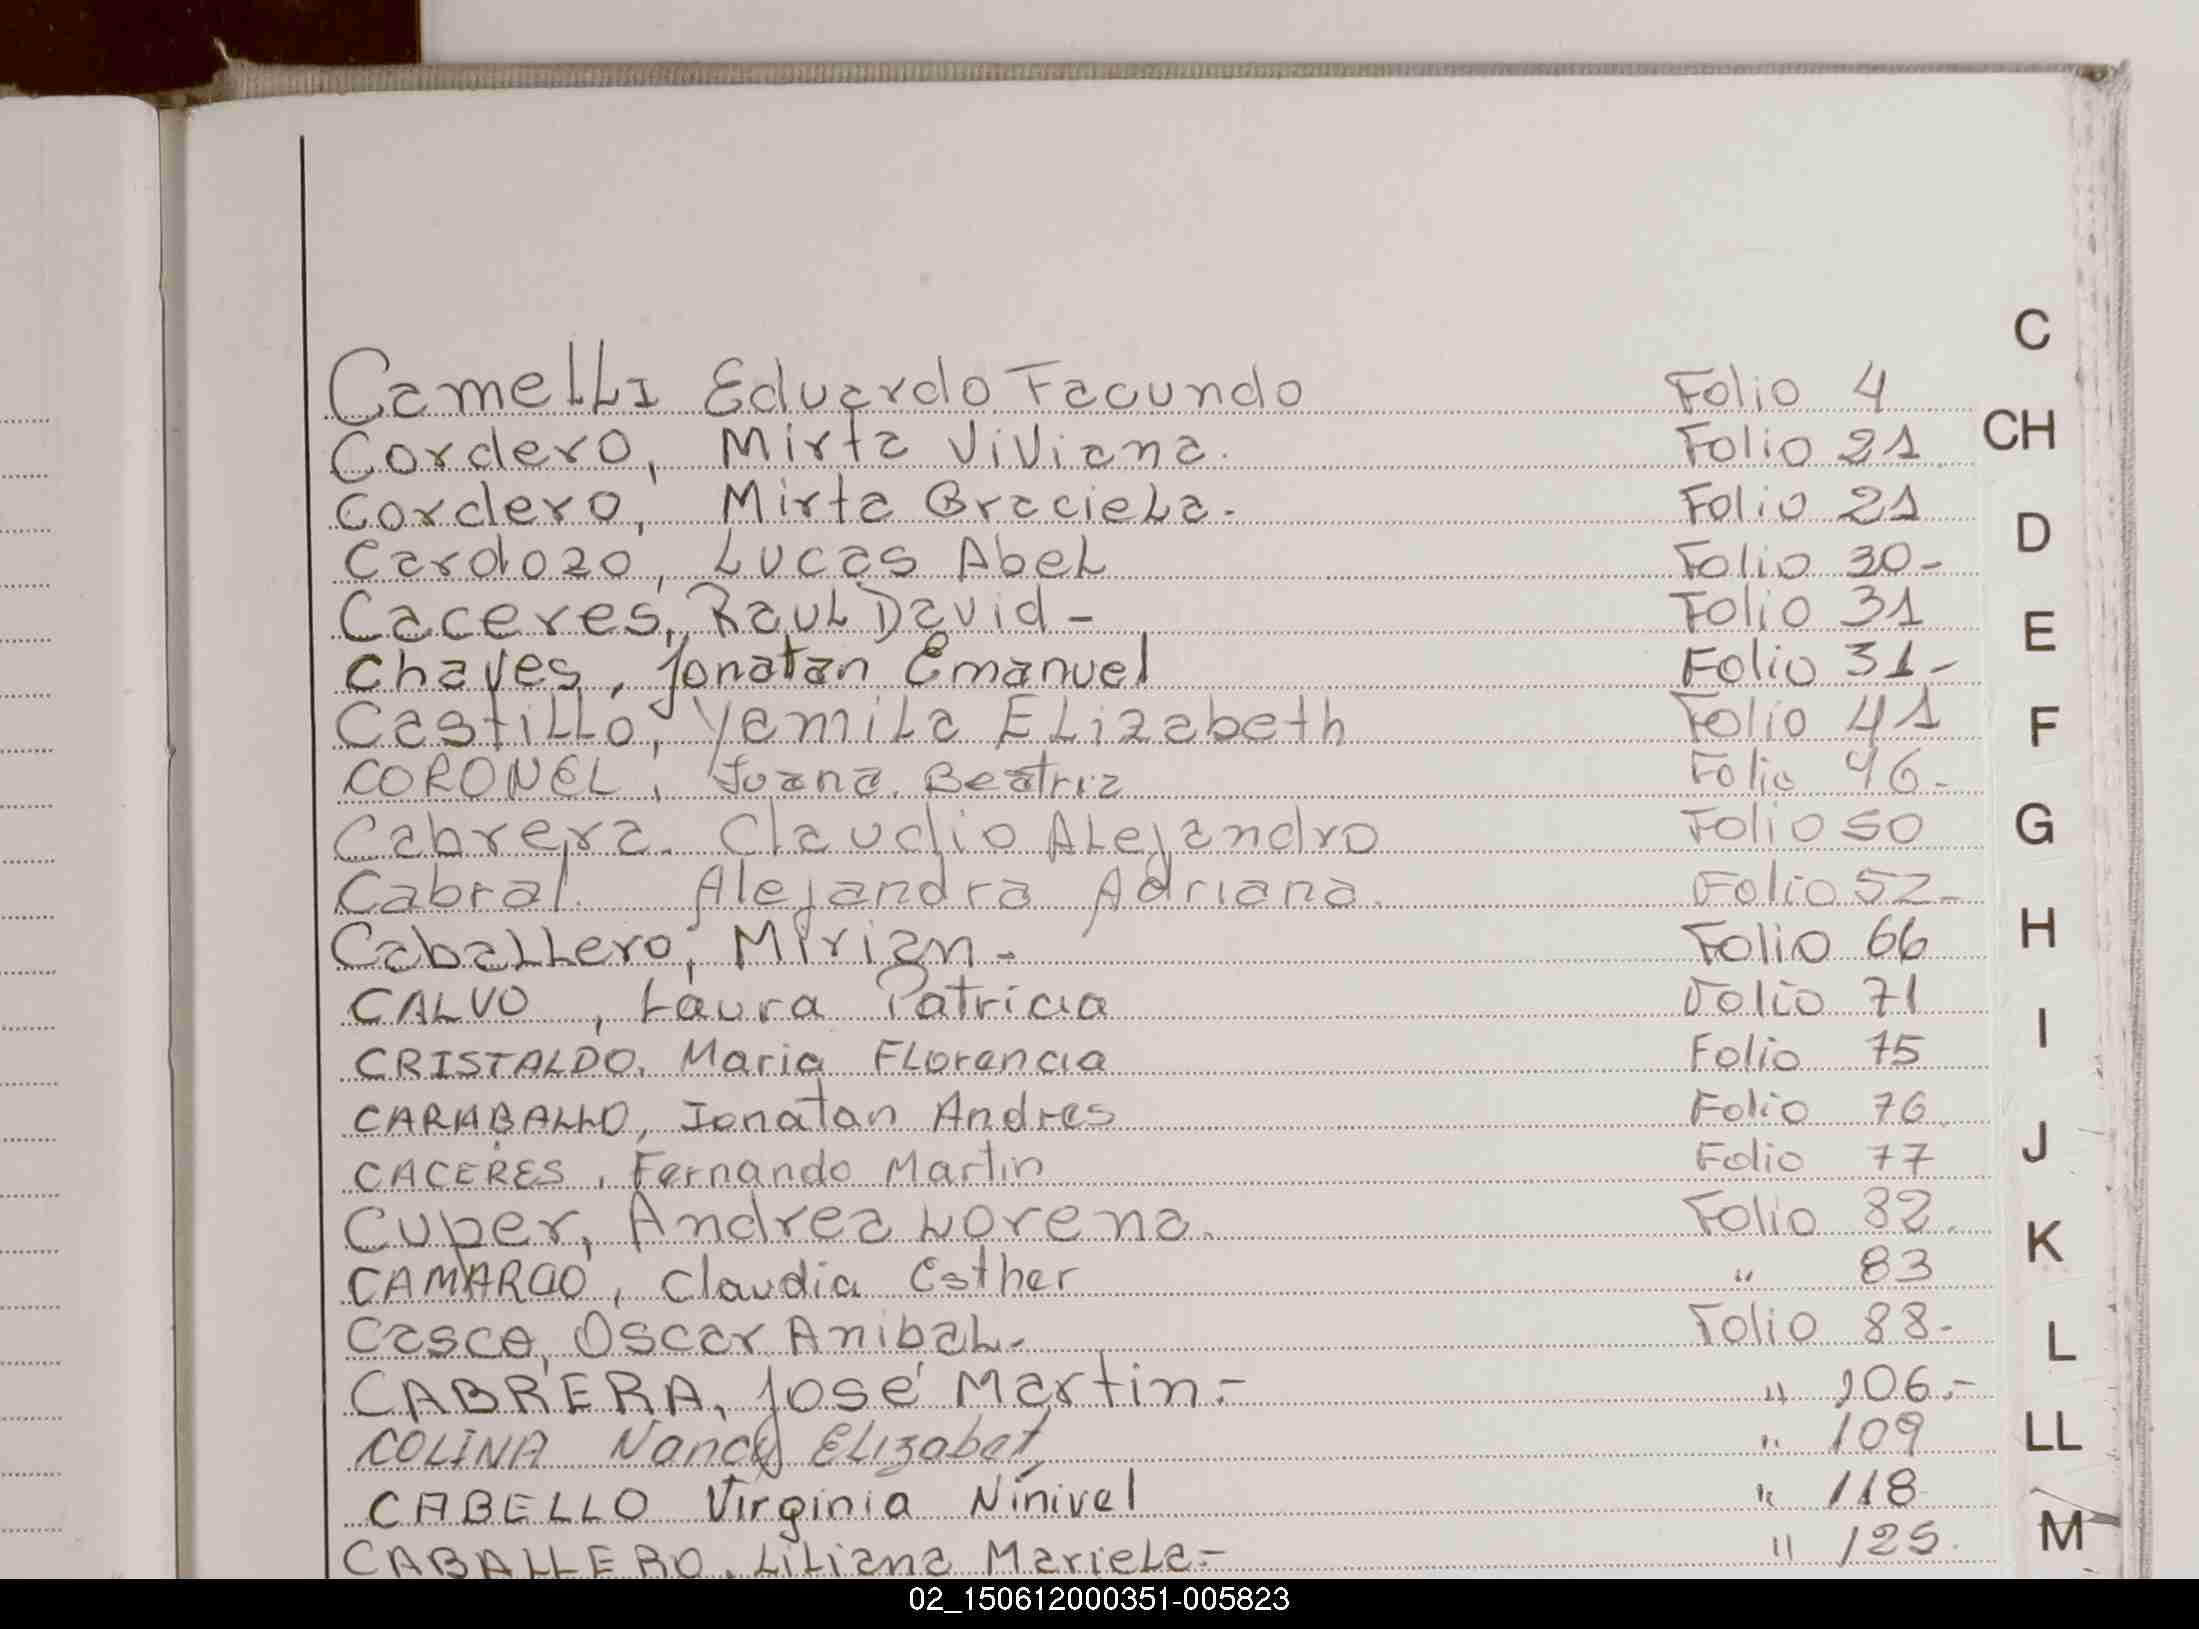 C
CamelLI Eduardo Facundo Folio 4
CH
Cordero, Mirta ViViana. Folio 21
Cordero, Mirta GracieLa. Folio 21
D
Cardozo, Lucas AbeL Folio 30-
Caceres, RauL David - Folio 31
E
Chaves, Jonatan Emanuel Folio 31-
CastiLLo, YamiLa ELizabeth Folio 41
F
CORONEL, Juana Beatriz Folio 46-
Cabrera. Claudio ALejandro Folio 50
G
Cabral. Alejandra Adriana. Folio 52-
CabaLLero, Mirian - Folio 66
H
CALVO, Laura Patricia Folio 71
I
CRISTALDO, Maria FLorencia Folio 75
CARABALLO, Jonatan Andres Folio 76
J
CACERES, Fernando Martin Folio 77
Cuper, Andrea Lorena. Folio 82.
K
CAMARGO, Claudia Esther " 83
Casco, Oscar AnibaL- Folio 88-
L
CABRERA, José Martin.- " 106.-
COLINA Nancy ELizabet " 109
LL
CABELLO Virginia Ninivel " 118
CABALLERO, LiLiana MarieLa- " 125.
M
02_150612000351-005823